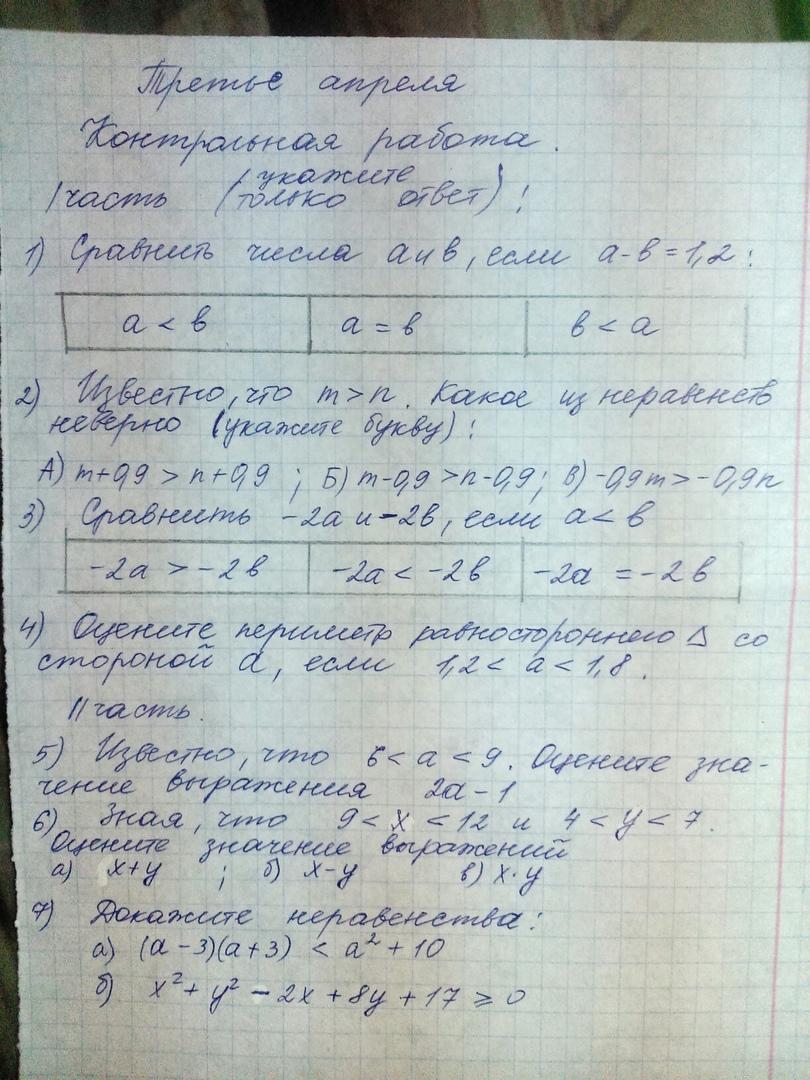 Третье апреля
Контрольная работа.
I часть (укажите только ответ):
1) Сравнить числа а и в, если а-в=1,2:
а < в а = в в < а
2) Известно, что m>n. Какое из неравенств
неверно (укажите букву):
А) m+0,9 > n+0,9 ; Б) m-0,9 >n-0,9; В) -0,9m>-0,9n
3) Сравнить -2а и -2в, если а<в
-2а > -2в -2а < -2в -2а = -2в
4) Оцените периметр равностороннего △ со
стороной а, если 1,2 < а < 1,8.
II часть.
5) Известно, что 6 < а < 9. Оцените зна-
чение выражения 2а-1
6) Зная, что 9 < х < 12 и 4 < у < 7.
Оцените значение выражений
а) х+у ; б) х-у в) х·у
7) Докажите неравенства:
а) (а-3)(а+3) < а² + 10
б) х² + у² - 2х + 8у + 17 ⩾ 0